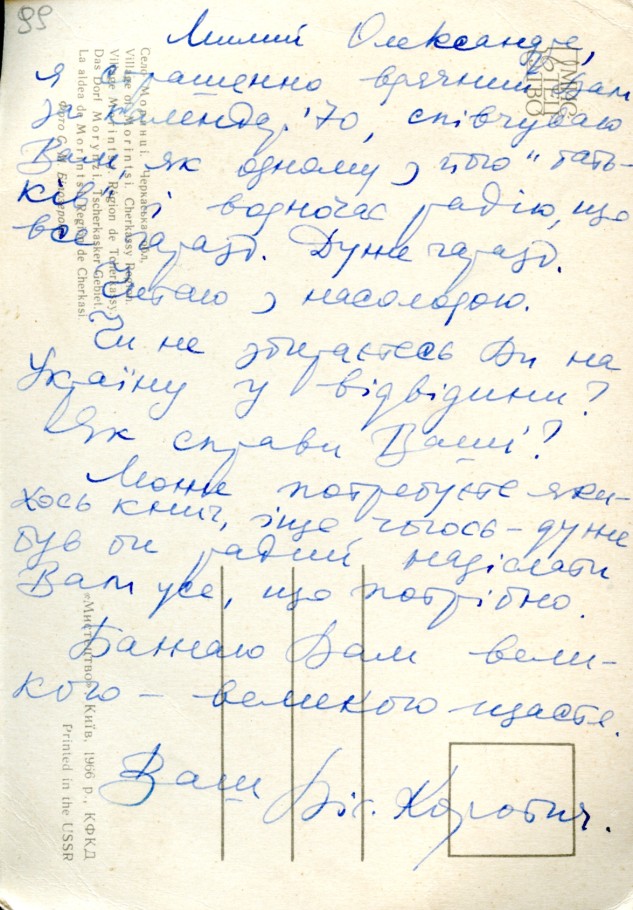 99
Милий Олександре,
я страшенно вдячний Вам
за календар '70, співчуваю
Вам, як одному з його "тать-
ків" і водночас радію, що
все гаразд. Дуже гаразд.
Читаю з насолодою.
Чи не збираєтесь Ви на
Україну у відвідини?
Як справи Ваші?
Може потребуєте яки-
хось книг, іще чогось – дуже
був би радий надіслати
Вам усе, що потрібно.
Бажаю Вам вели-
кого – великого щастя.
Ваш Віт. Коротич.
Село Моринці. Черкаська обл.
Village of Morintsi. Cherkassy Region.
Village Morintsi. Région de Tcherkassy.
Das Dorf Morynzi. Tscherkasker Gebiet.
La aldea de Morintsi. Región de Cherkasi.
Фото
«Мистецтво», Київ, 1966 р., КФКД
Printed in the USSR